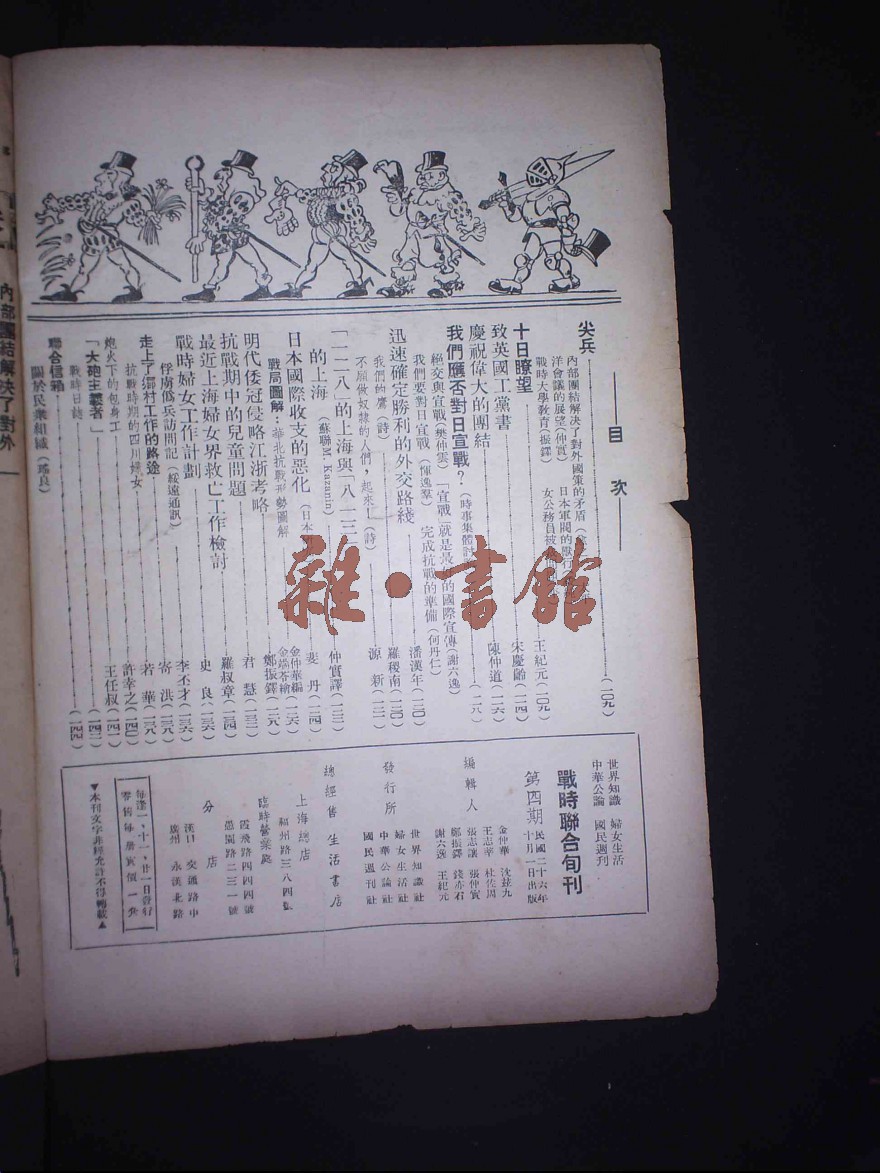 目 次
尖兵 (一〇九)
內部團結解決了對外國策的矛盾
洋會議的展望(仲實) 日本軍閥的獸行
戰時大學教育(振鐸) 女公務員被
十日瞭望 王紀元(一〇九)
致英國工黨書 宋慶齡(一一四)
慶祝偉大的團結 陳仲道(一一六)
我們應否對日宣戰?(時事集體討 (一一八)
絕交與宣戰(樊仲雲) 「宣戰」就是最 的國際宣傳(謝六逸)
我們要對日宣戰(惲逸羣) 完成抗戰的準備(何丹仁)
迅速確定勝利的外交路綫 潘漢年(一二〇)
我們的鷹(詩) 羅稷南(一二〇)
不願做奴隸的人們,起來!(詩) 源新(一二一)
「一二八」的上海與「八一三」
的上海(蘇聯M. Kazanin) 仲實譯(一二二)
日本國際收支的惡化(日本 斐丹(一二四)
戰局圖解:華北抗戰形勢圖解 金仲華編 金端苓繪(一二六)
明代倭冦侵略江浙考略 鄭振鐸(一二九)
抗戰期中的兒童問題 君慧(一三二)
最近上海婦女界救亡工作檢討 羅叔章(一三四)
戰時婦女工作計劃 史良(一三六)
俘虜僞兵訪問記(綏遠通訊) 李丕才(一三六)
走上了鄉村工作的路途 寄洪(一三八)
抗戰時期的四川婦女 若華(一三八)
炮火下的包身工 許幸之(一四〇)
「大砲主義者」 王任叔(一四一)
戰時日誌 (一四二)
聯合信箱 (一四四)
關於民衆組織
世界知識 婦女生活
中華公論 國民週刊
戰時聯合旬刊
第四期 民國二十六年
十月一日出版
編輯人
金仲華 沈玆九
王志莘 杜佐周
張志讓 張仲實
鄭振鐸 錢亦石
謝六逸 王紀元
發行所
世界知識社
婦女生活社
中華公論社
國民週刊社
總經售 生活書店
上海總店
福州路三八四號
臨時營業處
霞飛路四四四號
愚園路二三一號
分店
漢口 交通路中
廣州 永漢北路
每逢一,十一,廿一日發行
零售每册實價一角
▼本刊文字非經允許不得轉載▲
內部團結解決了對外
雜·書館